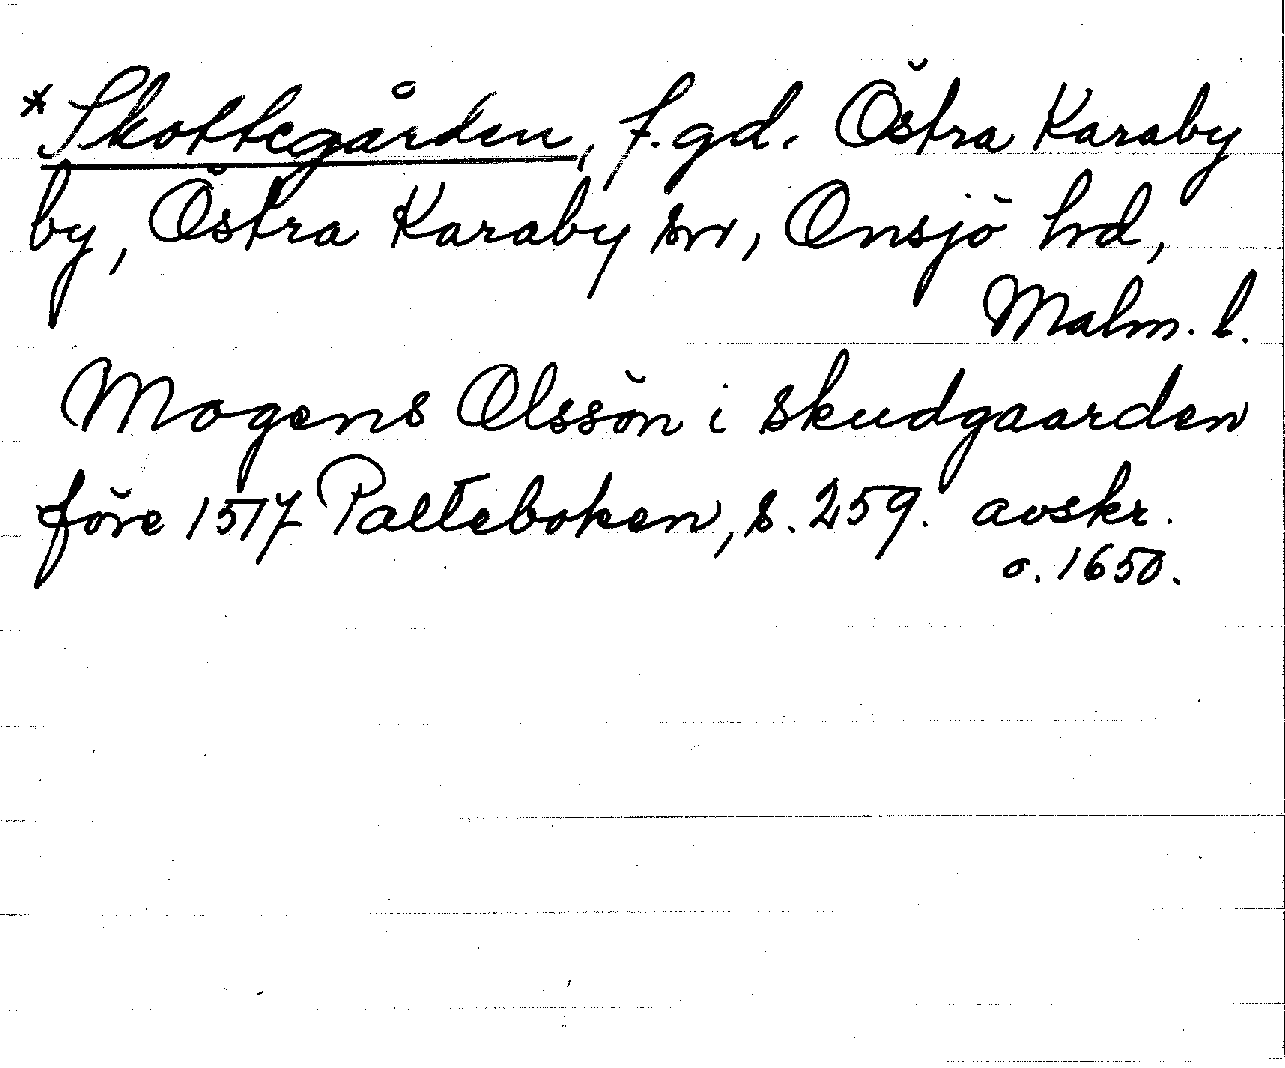 *Skottegården, f.gd. Östra Karaby
by, Östra Karaby sn, Onsjö hd,
Malm. l.
Mogens Olssön i skudgaarden
före 1517 Palteboken, s. 259. avskr.
o. 1650.